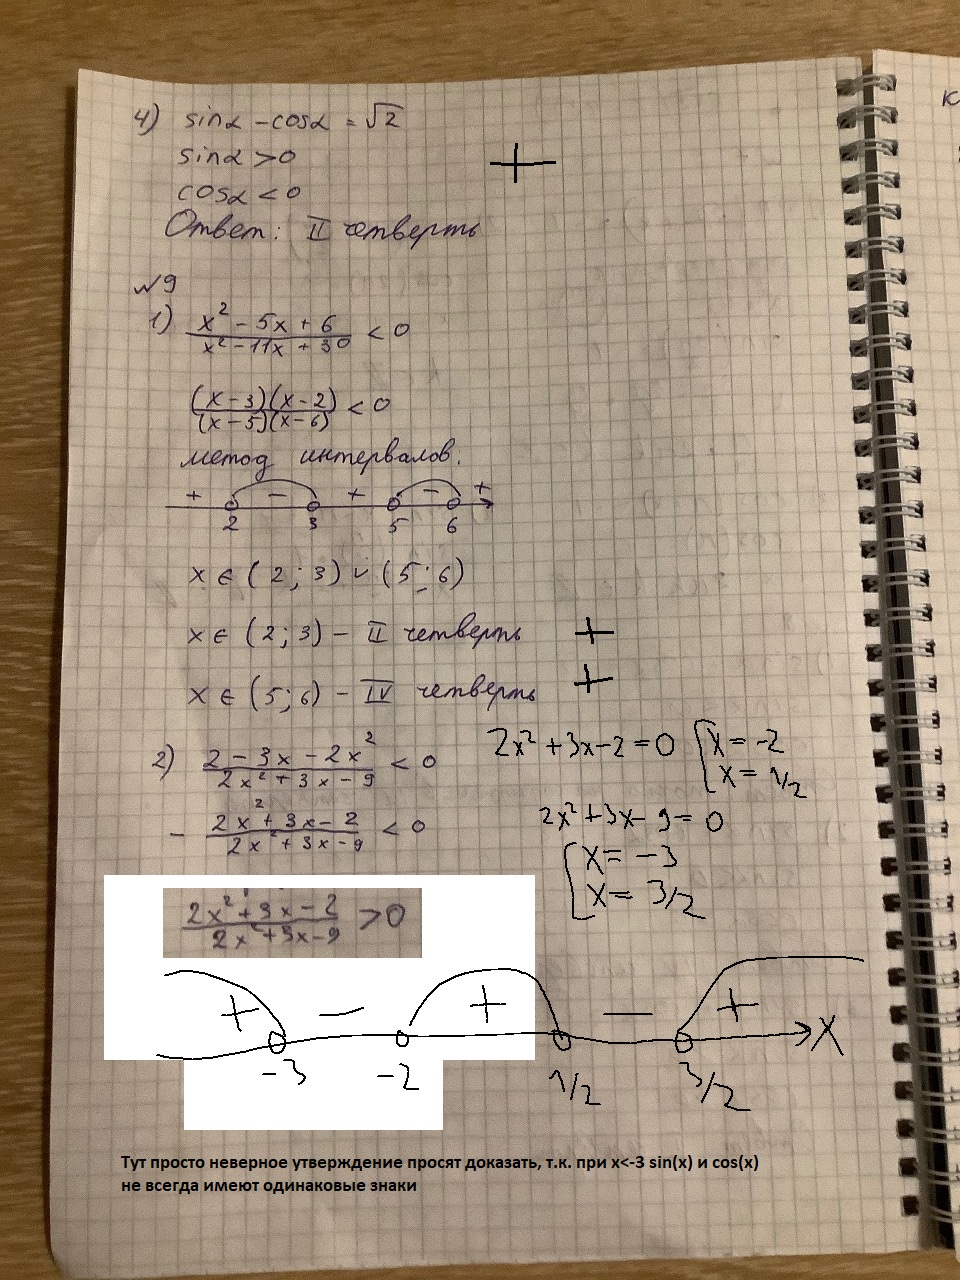 4) sinα - cosα = √2
sinα > 0
+
cosα < 0
Ответ: II четверть
№9
1) (x² - 5x + 6)/(x² - 11x + 30) < 0
((x - 3)(x - 2))/((x - 5)(x - 6)) < 0
метод интервалов.
+ - + - +
2 3 5 6
x ∈ (2; 3) ∪ (5; 6)
x ∈ (2; 3) - II четверть +
x ∈ (5; 6) - IV четверть +
2) (2 - 3x - 2x²)/(2x² + 3x - 9) < 0
2x² + 3x - 2 = 0 [x = -2
x = 1/2
- (2x² + 3x - 2)/(2x² + 3x - 9) < 0
2x² + 3x - 9 = 0
[x = -3
x = 3/2
(2x² + 3x - 2)/(2x² + 3x - 9) > 0
+ - + - +
-3 -2 1/2 3/2 X
Тут просто неверное утверждение просят доказать, т.к. при x<-3 sin(x) и cos(x)
не всегда имеют одинаковые знаки